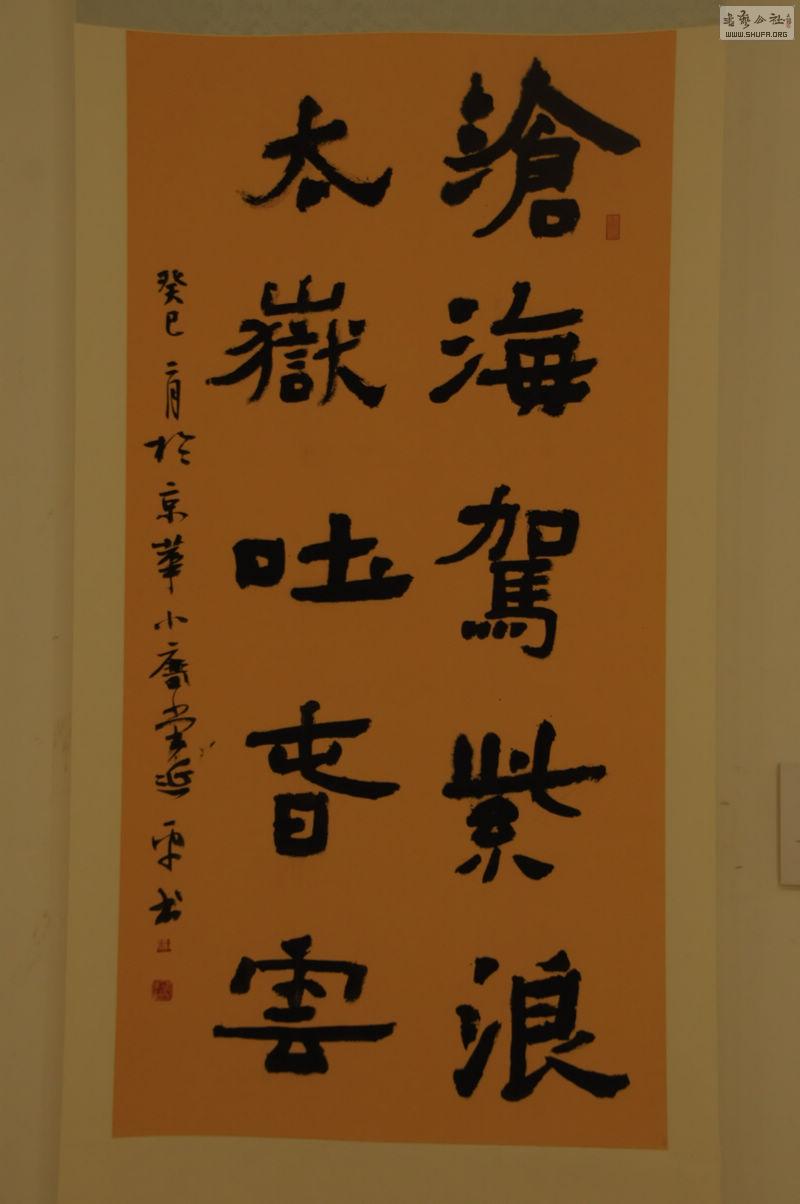 滄海駕紫浪
太嶽吐旾雲
癸巳二月於京華小齋延平书
書藝公社
WWW.SHUFA.ORG